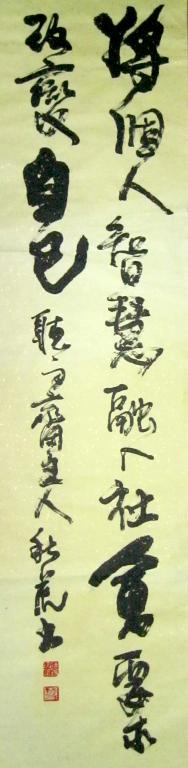 將個人智慧融入社會要求
改變自己 聽雨齋主人秋書